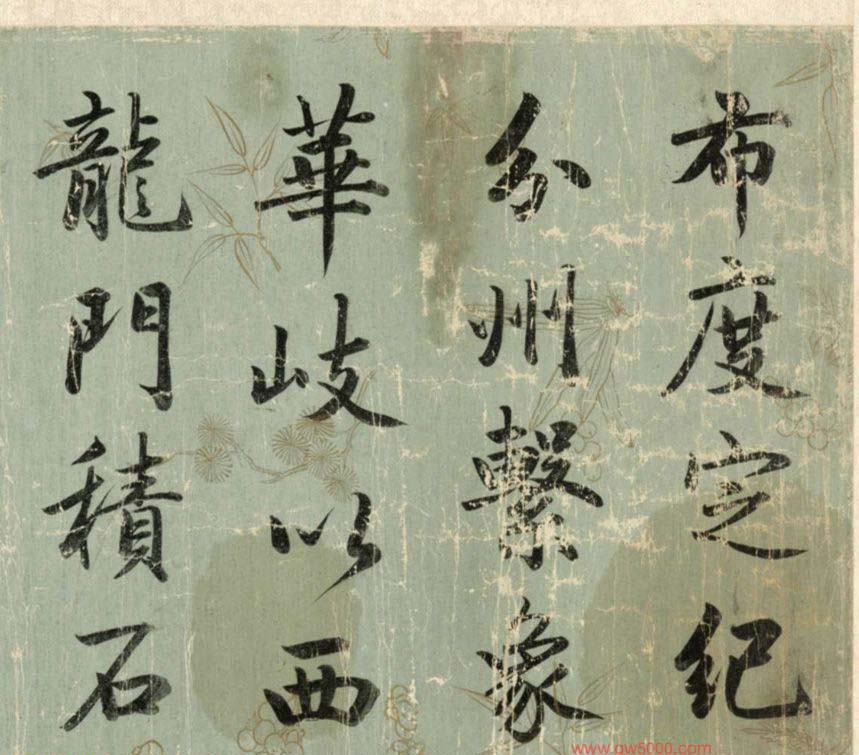 布度定紀
分州繫象
華岐以西
龍門積石
www.gw5000.com